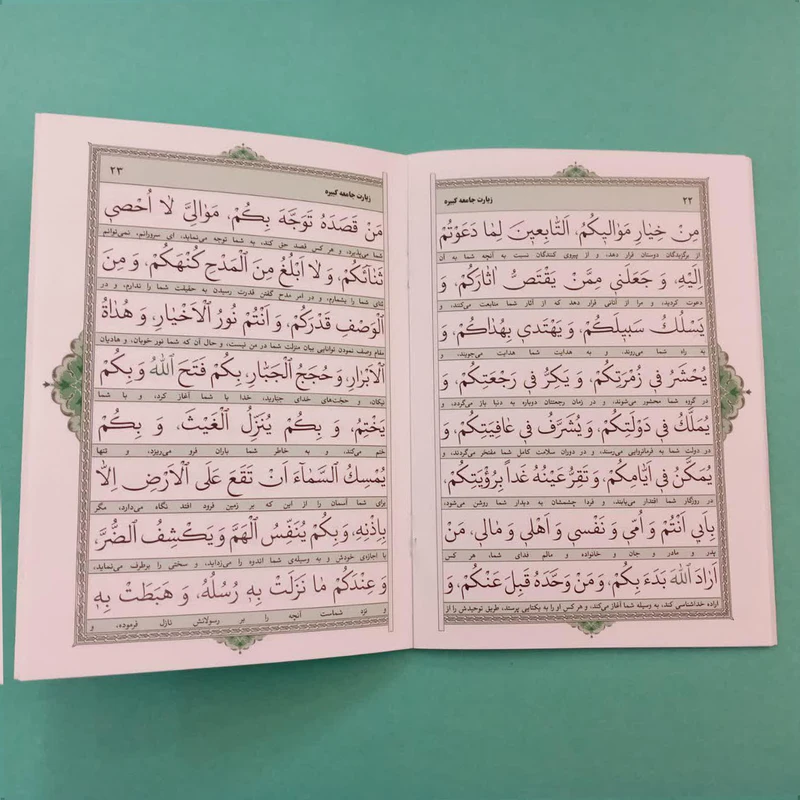 ۲۲
زیارت جامعه کبیره
مِنْ خِيَارِ مَوَالِيكُمْ، اَلتَّابِعِينَ لِمَا دَعَوْتُمْ
از برگزیدگان دوستان قرار دهد، و از پیروی کنندگان نسبت به آنچه شما به آن
اِلَيْهِ، وَ جَعَلَنِي مِمَّنْ يَقْتَصُّ اٰثَارَكُمْ، وَ
دعوت کردید، و مرا از آنانی قرار دهد که از آثار شما متابعت می‌کنند، و
يَسْلُكُ سَبِيلَكُمْ، وَ يَهْتَدِي بِهُدٰاكُمْ، وَ
به راه شما می‌روند، و به هدایت شما هدایت می‌جویند، و
يُحْشَرُ فِي زُمْرَتِكُمْ، وَ يَكِرُّ فِي رَجْعَتِكُمْ، وَ
در گروه شما محشور می‌شوند، و در زمان رجعتتان دوباره به دنیا باز می‌گردد، و
يُمَلَّكُ فِي دَوْلَتِكُمْ، وَ يُشَرَّفُ فِي عَافِيَتِكُمْ، وَ
در دولت شما به فرمانروایی می‌رسند، و در دوران سلامت کامل شما مفتخر می‌گردند، و
يُمَكَّنُ فِي اَيَّامِكُمْ، وَ تَقِرُّ عَيْنُهُ غَداً بِرُؤْيَتِكُمْ،
در روزگار شما اقتدار می‌یابند، و فردا چشمشان به دیدار شما روشن می‌شود،
بِاَبِي اَنْتُمْ وَ اُمِّي وَ نَفْسِي وَ اَهْلِي وَ مَالِي، مَنْ
پدر و مادر و جان و خانواده و مالم فدای شما، هر کس
اَرَادَ اللهَ بَدَءَ بِكُمْ، وَ مَنْ وَحَّدَهُ قَبِلَ عَنْكُمْ، وَ
اراده خداشناسی کند، به وسیله شما آغاز می‌کند، و هر کس او را به یکتایی پرستد، طریق توحیدش را از
۲۳
زیارت جامعه کبیره
مَنْ قَصَدَهُ تَوَجَّهَ بِكُمْ، مَوَالِيَّ لاٰ اُحْصِي
شما می‌پذیرد، و هر کس قصد حق کند، به شما توجه می‌نماید، ای سرورانم، نمی‌توانم
ثَنَائَكُمْ، وَ لاٰ اَبْلُغُ مِنَ الْمَدْحِ كُنْهَكُمْ، وَ مِنَ
ثنای شما را بشمارم، و در امر مدح گفتن قدرت رسیدن به حقیقت شما را ندارم، و در
الْوَصْفِ قَدْرَكُمْ، وَ اَنْتُمْ نُورُ الْاَخْيَارِ، وَ هُدٰاةُ
مقام وصف نمودن توانایی بیان منزلت شما در من نیست، و حال آن که شما نور خوبان، و هادیان
الْاَبْرَارِ، وَ حُجَجُ الْجَبَّارِ، بِكُمْ فَتَحَ اللهُ وَ بِكُمْ
نیکان، و حجت‌های خدای جبّارید، خدا با شما آغاز کرد، و با شما
يَخْتِمُ، وَ بِكُمْ يُنَزِّلُ الْغَيْثَ، وَ بِكُمْ
ختم می‌کند، و به خاطر شما باران فرو می‌ریزد، و تنها
يُمْسِكُ السَّمٰاءَ اَنْ تَقَعَ عَلَى الْاَرْضِ اِلاّٰ
برای شما آسمان را از این که بر زمین فرود افتد نگاه می‌دارد، مگر
بِاِذْنِهِ، وَ بِكُمْ يُنَفِّسُ الْهَمَّ وَ يَكْشِفُ الضُّرَّ،
با اجازه‌ی خودش و به وسیله‌ی شما اندوه را می‌زداید، و سختی را برطرف می‌نماید،
وَ عِنْدَكُمْ مٰا نَزَلَتْ بِهِ رُسُلُهُ، وَ هَبَطَتْ بِهِ
و نزد شماست آنچه را بر رسولانش نازل فرموده، و